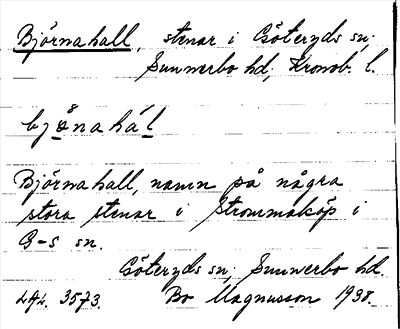 Björnahall, stenar i Göteryds sn,
Sunnerbo hd, Kronob. l.
bjönahál
Björnahall, namn på några
stora stenar i Strommaköp i
G-s sn.
Göteryds sn, Sunnerbo hd.
3573 Bo Magnusson 1938.